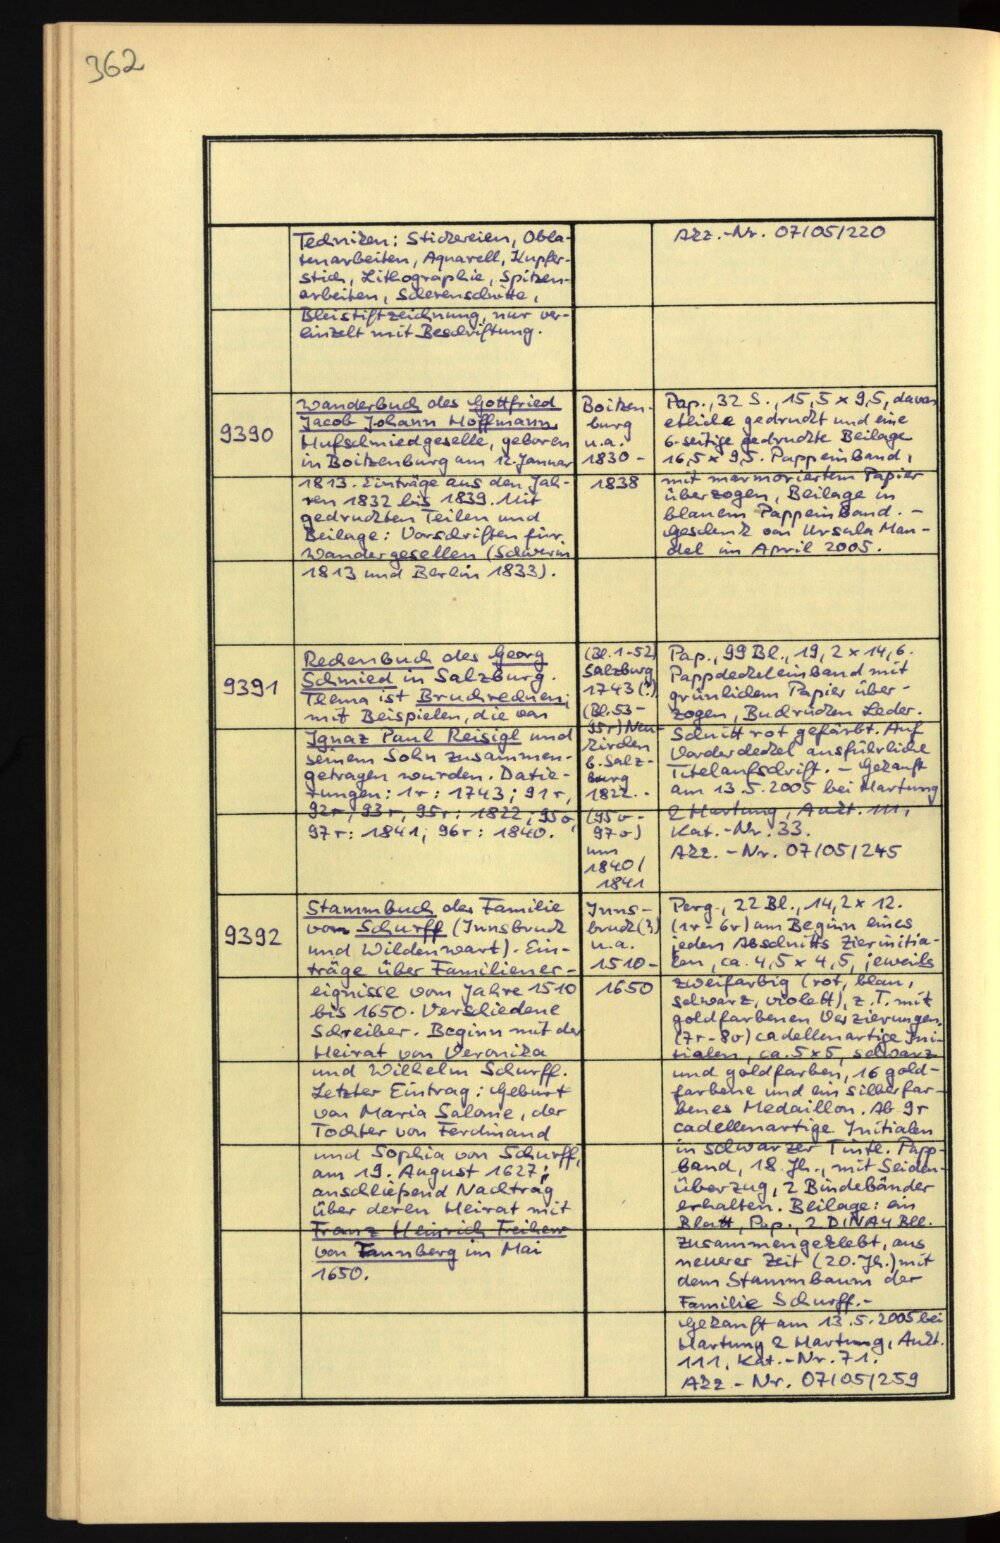 362
Techniken: Stickereien, Obla-
tenarbeiten, Aquarell, Kupfer-
stich, Lithographie, Spitzen-
arbeiten, Scherenschnitte,
Bleistiftzeichnung, nur ver-
einzelt mit Beschriftung.
Akz.-Nr. 07/05/220
9390
Wanderbuch des Gottfried
Jacob Johann Hoffmann,
Hufschmiedgeselle, geboren
in Boitzenburg am 12. Januar
1813. Einträge aus den Jah-
ren 1832 bis 1839. Mit
gedruckten Teilen und
Beilage: Vorschriften für
Wandergesellen (Schwerin
1813 und Berlin 1833).
Boitzen-
burg
u.a.
1830-
1838
Pap., 32 S., 15,5 x 9,5, davon
etliche gedruckt und eine
6-seitige gedruckte Beilage
16,5 x 9,5. Pappeinband,
mit marmoriertem Papier
überzogen, Beilage in
blauem Pappeinband. -
Geschenk von Ursula Man-
del im April 2005.
9391
Rechenbuch des Georg
Schmied in Salzburg.
Thema ist Bruchrechnen,
mit Beispielen, die von
Ignaz Paul Reisigl und
seinem Sohn zusammen-
getragen wurden. Datie-
rungen: 1r: 1743; 91r,
92r, 93r, 95r: 1822; 95v,
97r: 1841; 96r: 1840.
(Bl. 1-52)
Salzburg
1743(?),
(Bl. 53-
95r) Neu-
kirchen
b. Salz-
burg
1822.-
(95v-
97v)
um
1840/
1841
Pap., 99 Bl., 19,2 x 14,6.
Pappdeckeleinband mit
grünlichem Papier über-
zogen, Buchrücken Leder.
Schnitt rot gefärbt. Auf
Vorderdeckel ausführliche
Titelaufschrift. - Gekauft
am 13.5.2005 bei Hartung
& Hartung, Aukt. 111,
Kat.-Nr. 33.
Akz.-Nr. 07/05/245
9392
Stammbuch der Familie
von Schurff (Innsbruck
und Wildenwart). Ein-
träge über Familiener-
eignisse vom Jahre 1510
bis 1650. Verschiedene
Schreiber. Beginn mit der
Heirat von Veronika
und Wilhelm Schurff.
Letzter Eintrag: Geburt
von Maria Salome, der
Tochter von Ferdinand
und Sophia von Schurff,
am 19. August 1627;
anschließend Nachtrag
über deren Heirat mit
Franz Heinrich Freiherr
von Tannberg im Mai
1650.
Inns-
bruck(?)
u.a.
1510-
1650
Perg., 22 Bl., 14,2 x 12.
(1r-6v) am Beginn eines
jeden Abschnitts Zierinitia-
len, ca. 4,5 x 4,5, jeweils
zweifarbig (rot, blau,
schwarz, violett), z.T. mit
goldfarbenen Verzierungen.
(7r-8v) cadellenartige Ini-
tialen, ca. 5x5, schwarz
und goldfarben, 16 gold-
farbene und ein silberfar-
benes Medaillon. Ab 9r
cadellenartige Initialen
in schwarzer Tinte. Papp-
band, 18. Jh., mit Seiden-
überzug, 2 Bindebänder
erhalten. Beilage: ein
Blatt, Pap., 2 DINA4 Bll.
zusammengeklebt, aus
neuerer Zeit (20. Jh.) mit
dem Stammbaum der
Familie Schurff.-
Gekauft am 13.5.2005 bei
Hartung & Hartung, Aukt.
111, Kat.-Nr. 71.
Akz.-Nr. 07/05/259